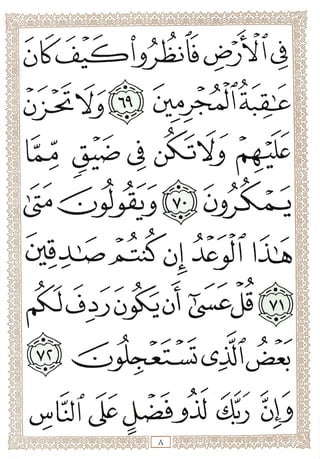 فِى ٱلْأَرْضِ فَٱنظُرُوا۟ كَيْفَ كَانَ
عَـٰقِبَةُ ٱلْمُجْرِمِينَ ٦٩ وَلَا تَحْزَنْ
عَلَيْهِمْ وَلَا تَكُن فِى ضَيْقٍ مِّمَّا
يَمْكُرُونَ ٧٠ وَيَقُولُونَ مَتَىٰ
هَـٰذَا ٱلْوَعْدُ إِن كُنتُمْ صَـٰدِقِينَ
٧١ قُلْ عَسَىٰٓ أَن يَكُونَ رَدِفَ لَكُم
بَعْضُ ٱلَّذِى تَسْتَعْجِلُونَ ٧٢
وَإِنَّ رَبَّكَ لَذُو فَضْلٍ عَلَى ٱلنَّاسِ
٨